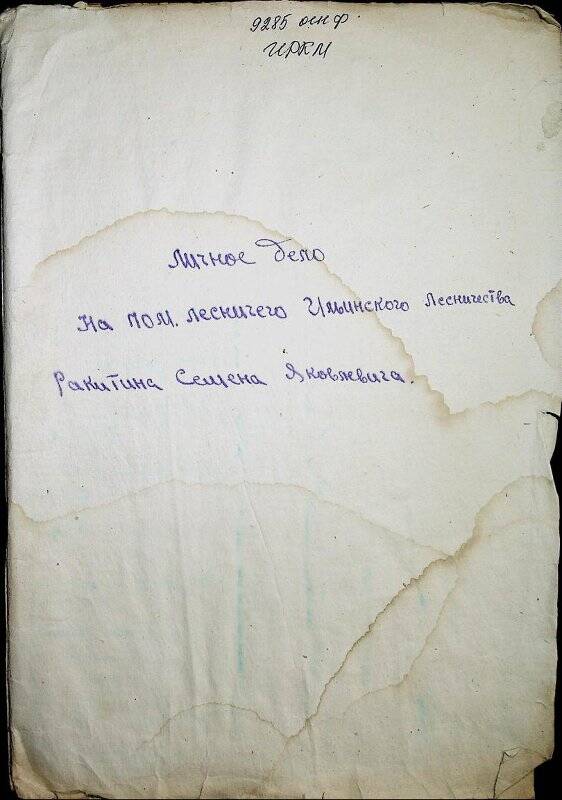 9285 оснф.
ИРКМ
Личное дело
На пом. лесничего Ильинского Лесничества
Ракитина Семена Яковлевича.